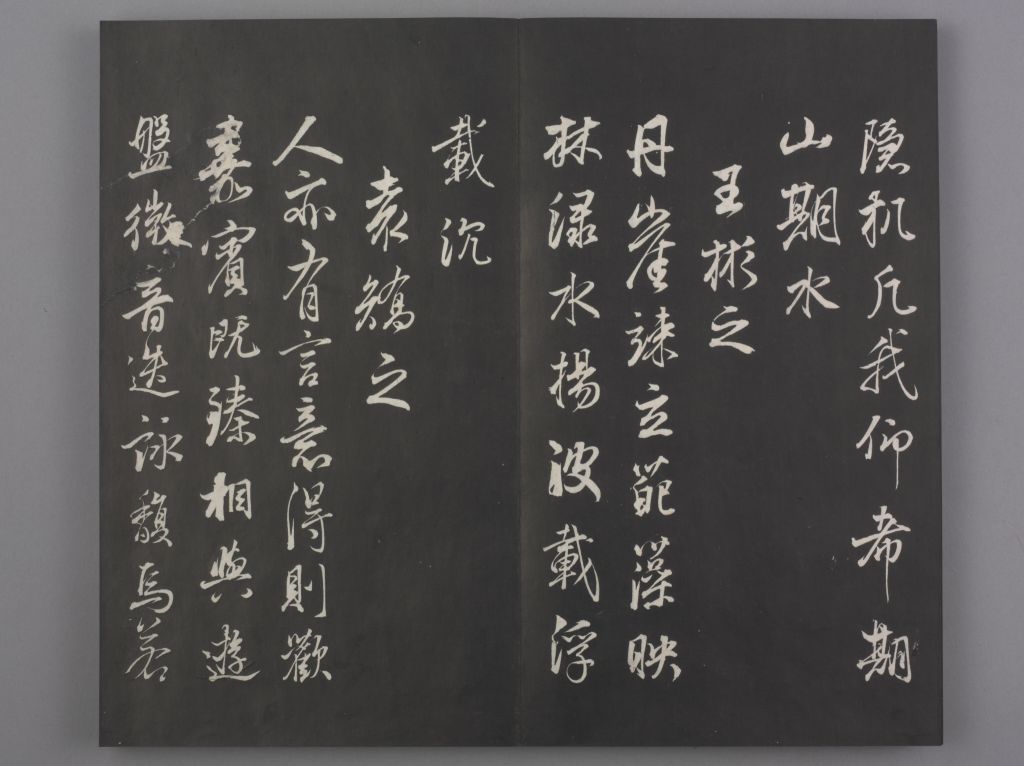 隱机凡我仰希期
山期水
王彬之
丹崖竦立葩藻映
林淥水揚波載浮
載沉
袁矯之
人亦有言意得則歡
嘉賓既臻相與遊
盤微音迭詠馥焉若